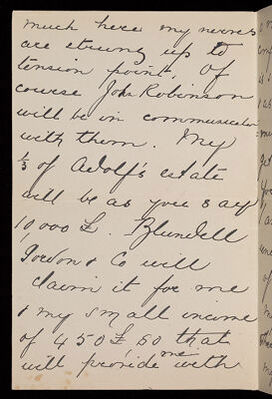 much here my nerves
are strung up to
tension point. Of
course John Robinson
will be in communication
with them. My
⅓ of Adolf's estate
will be as you say
10,000 £. Blundell
Gordon & Co will
claim it for me
& my small income
of 450£, so that
will provide me with